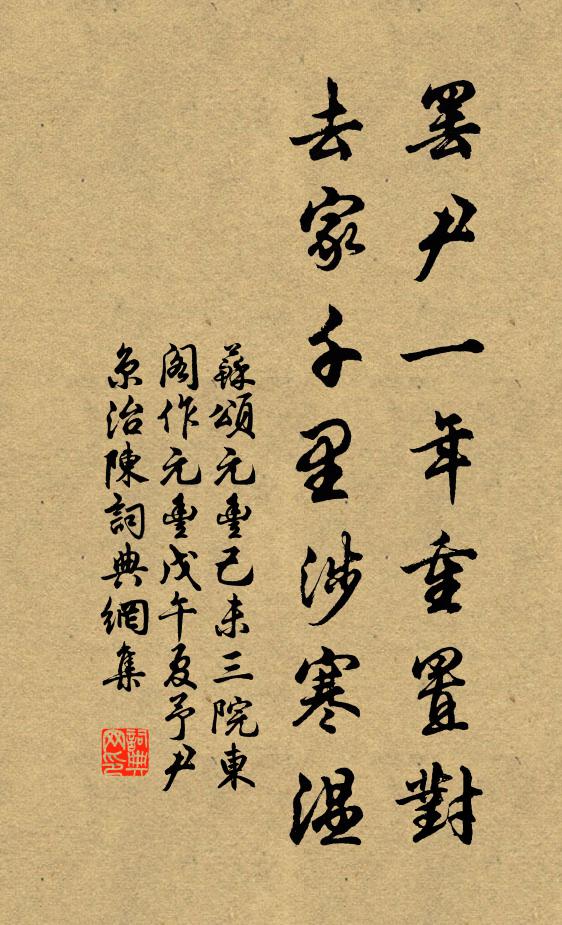 罷尹一年重置對
去家千里涉寒溫
蘇頌元豐己未三院東
閣作元豐戊午夏予尹
京治陳詞典網集
詞典網印